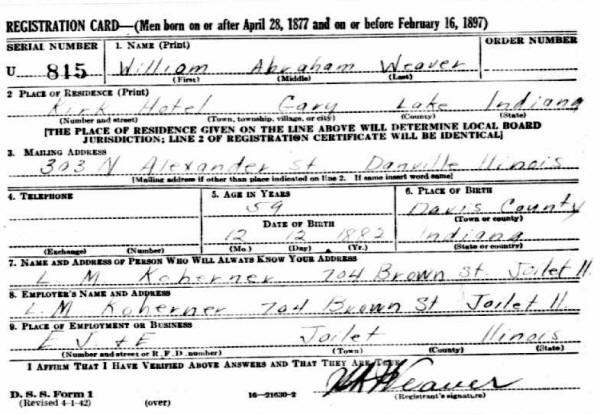 REGISTRATION CARD—(Men born on or after April 28, 1877 and on or before February 16, 1897)
SERIAL NUMBER 1. NAME (Print) ORDER NUMBER
U 815 William Abraham Weaver
(First) (Middle) (Last)
2 PLACE OF RESIDENCE (Print)
Kirk Hotel Gary Lake Indiana
(Number and street) (Town, township, village, or city) (County) (State)
[THE PLACE OF RESIDENCE GIVEN ON THE LINE ABOVE WILL DETERMINE LOCAL BOARD
JURISDICTION; LINE 2 OF REGISTRATION CERTIFICATE WILL BE IDENTICAL]
3. MAILING ADDRESS
303 N Alexander St Danville Ilinois
[Mailing address if other than place indicated on line 2. If same insert word same]
4. TELEPHONE 5. AGE IN YEARS 6. PLACE OF BIRTH
59 Davis County
DATE OF BIRTH (Town or county)
12 12 1882 Indiana
(Exchange) (Number) (Mo.) (Day) (Yr.) (State or country)
7. NAME AND ADDRESS OF PERSON WHO WILL ALWAYS KNOW YOUR ADDRESS
L. M Koherner 704 Brown St Joilet Il.
8. EMPLOYER'S NAME AND ADDRESS
L. M Koherner 704 Brown St Joilet Il
9. PLACE OF EMPLOYMENT OR BUSINESS
E J + E Joilet Ilinois
(Number and street or R. F. D. number) (Town) (County) (State)
I AFFIRM THAT I HAVE VERIFIED ABOVE ANSWERS AND THAT THEY ARE TRUE.
Weaver
D. S. S. Form 1
(Revised 4-1-42) (over) 16—21630-2 (Registrant's signature)